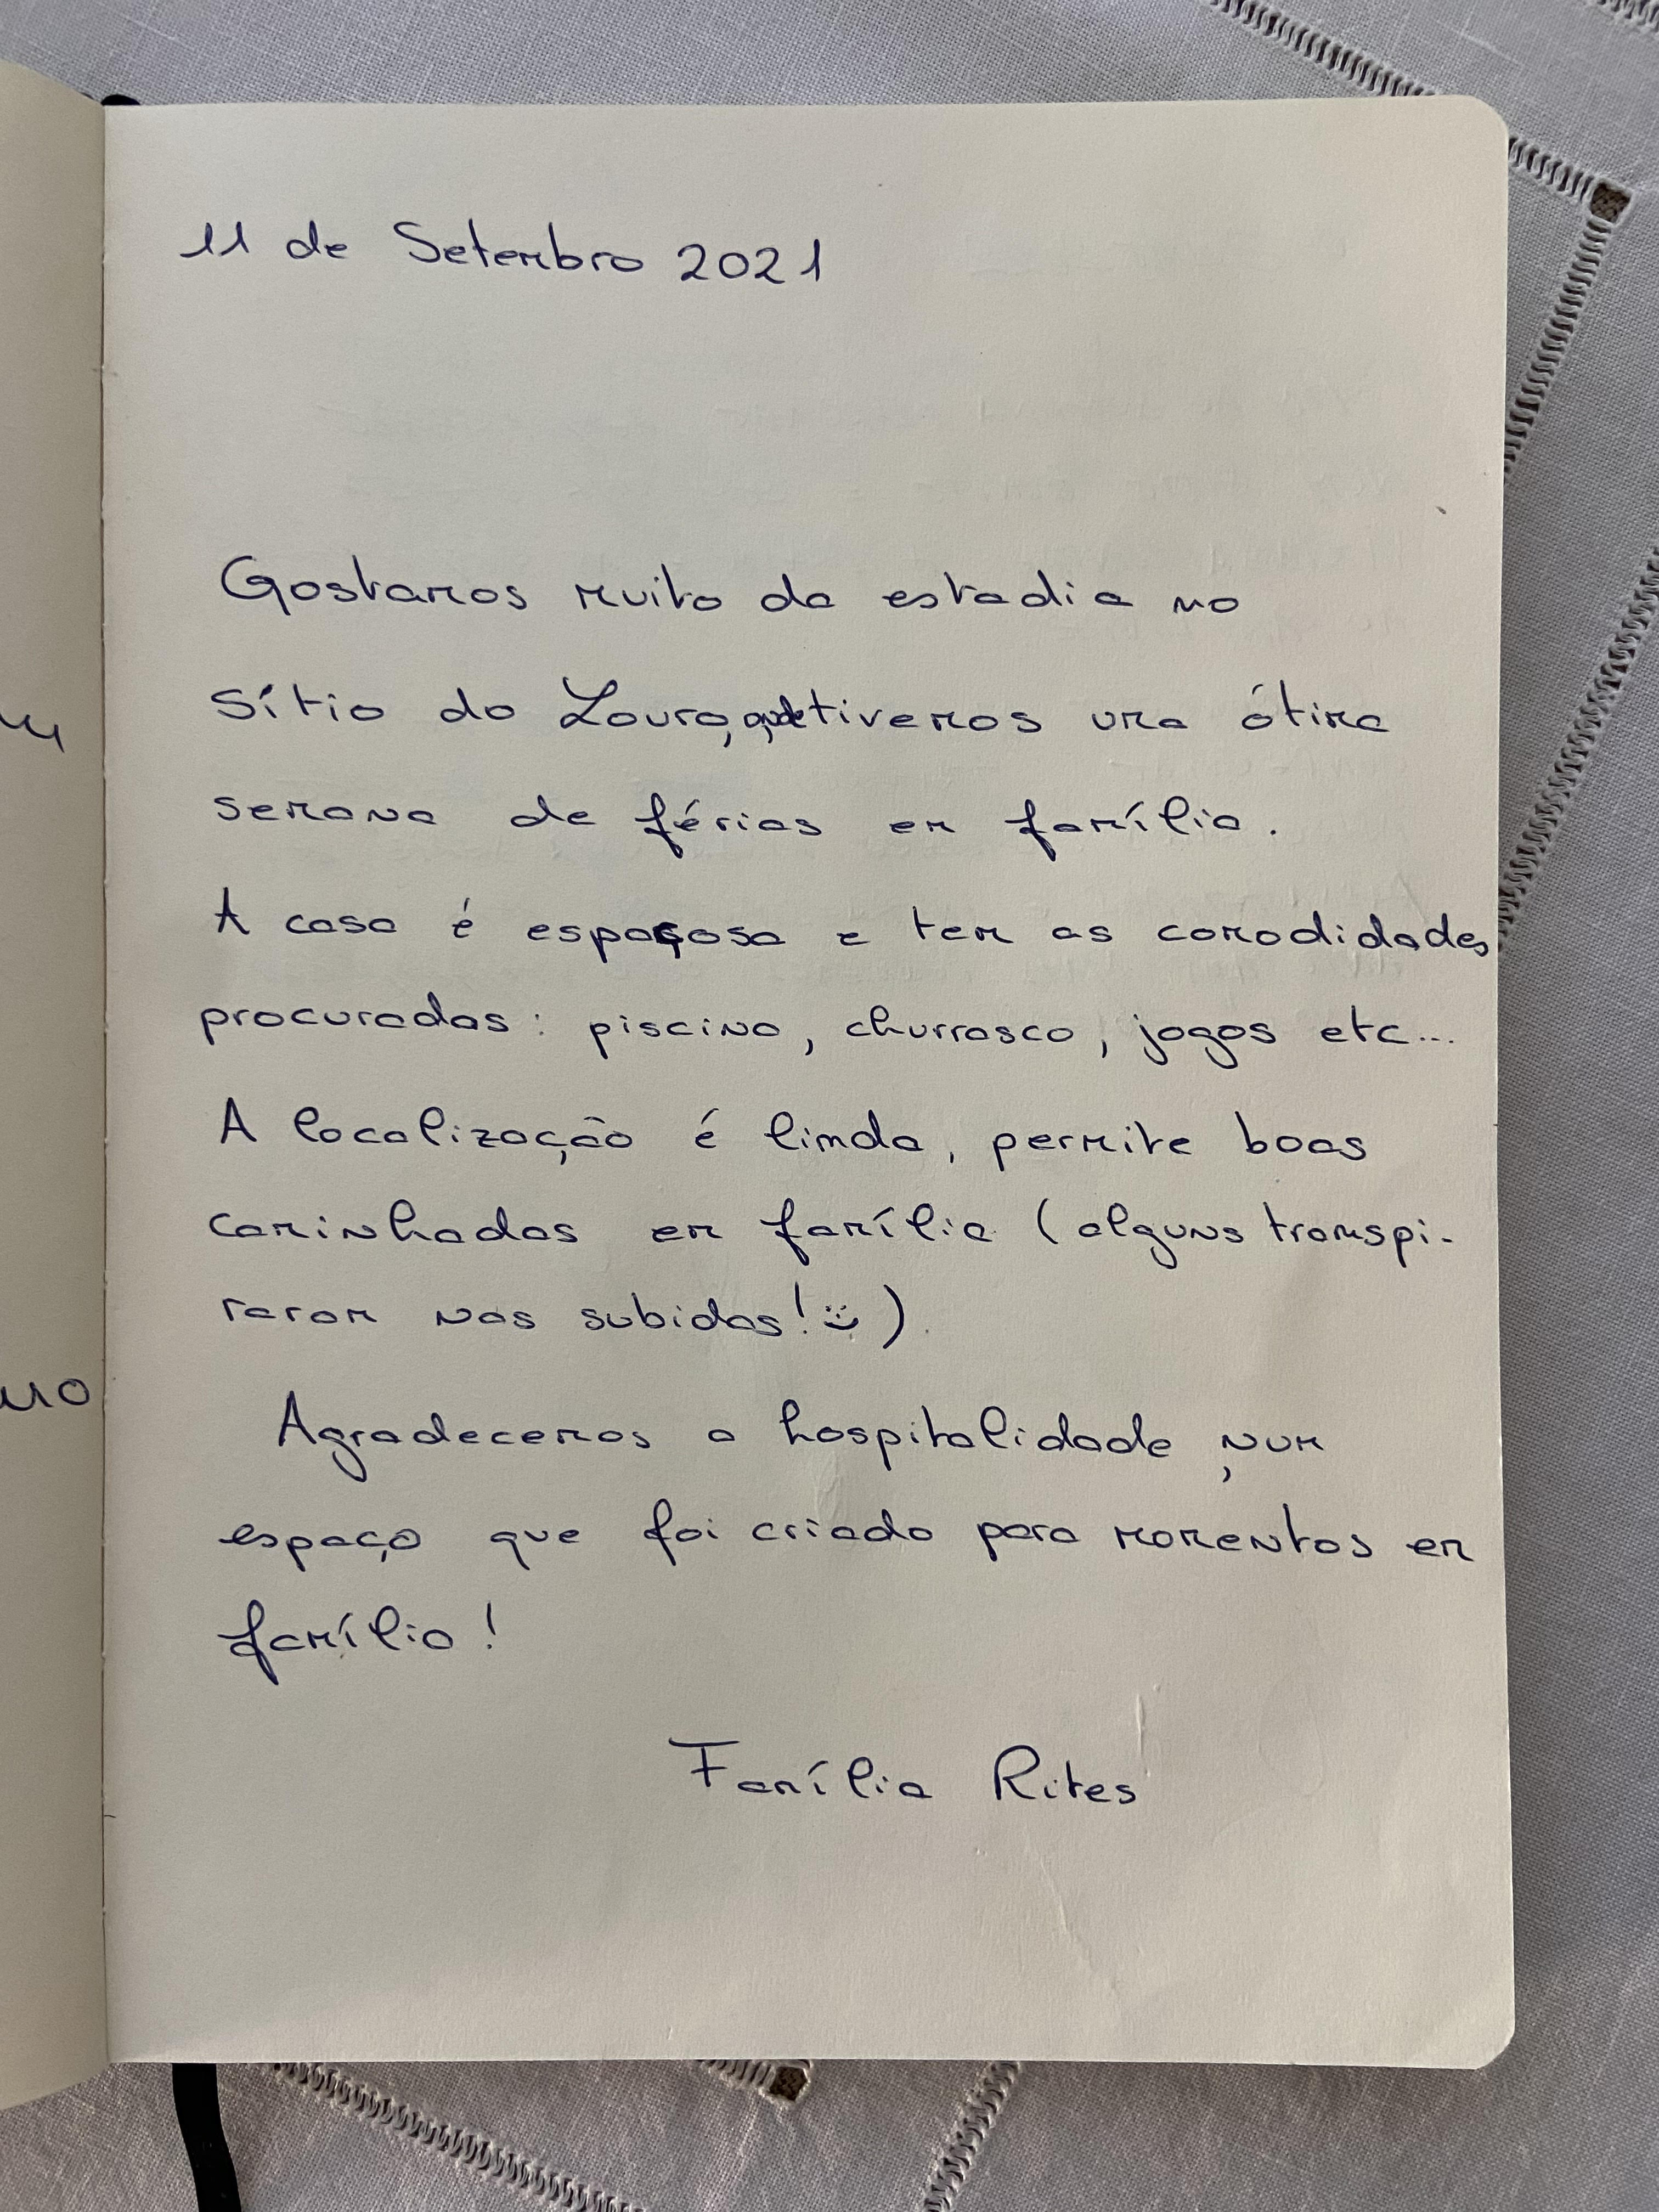 11 de Setembro 2021
Gostamos muito da estadia no
sítio do Louro, onde tivemos uma ótima
semana de férias em família.
A casa é espaçosa e tem as comodidades
procuradas: piscina, churrasco, jogos etc...
A localização é linda, permite boas
caminhadas em família (alguns transpi-
raram nas subidas! :))
Agradecemos a hospitalidade, num
espaço que foi criado para momentos em
família!
Família Rites
no